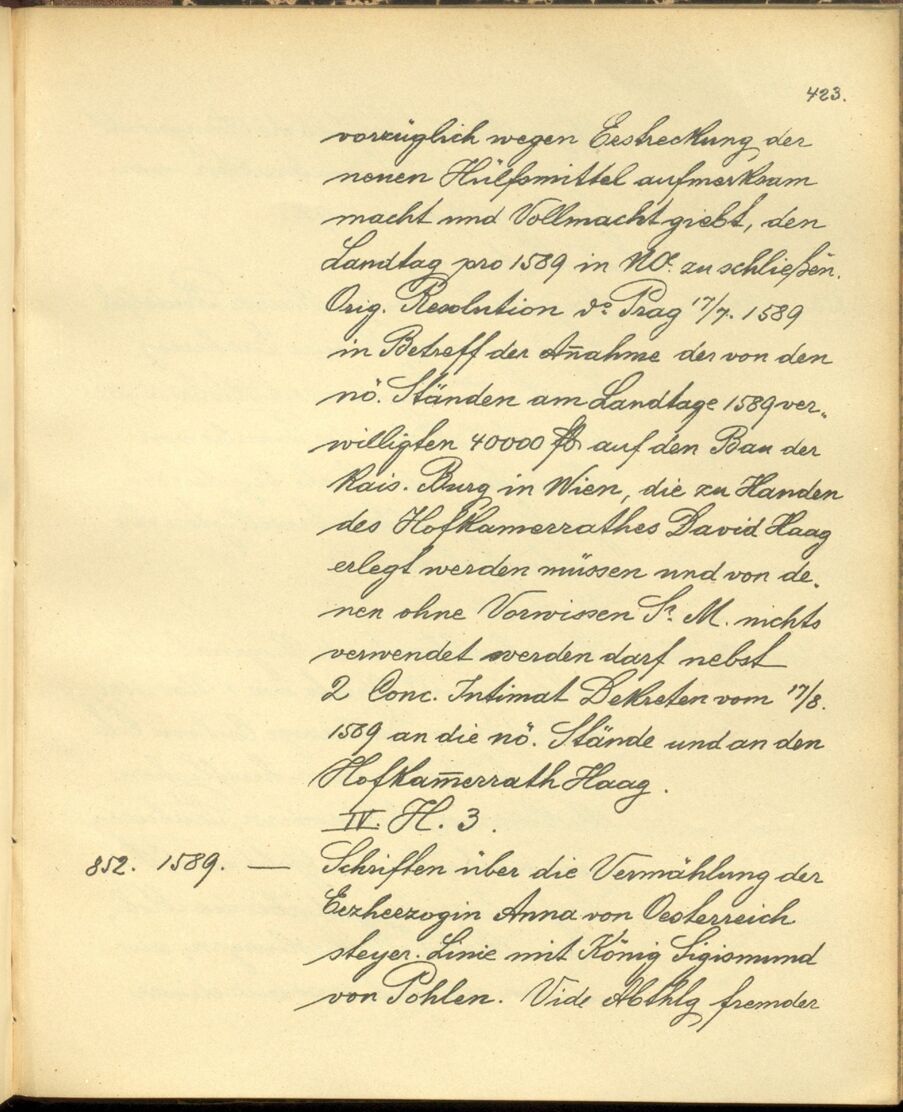 423.
vorzüglich wegen Erstreckung der
neuen Hülfsmittel aufmerksam
macht und Vollmacht giebt, den
Landtag pro 1589 in NÖ. zu schließen.
Orig. Resolution do Prag 17/7. 1589
in Betreff der An̄ahme der von den
nö. Ständen am Landtage 1589 ver„
willigten 40000 fl auf den Bau der
Kais. Burg in Wien, die zu Handen
des Hofkamerrathes David Haag
erlegt werden müssen und von de„
nen ohne Vorwissen Sr. M. nichts
verwendet werden darf nebst
2 Conc. Intimat Dekreten vom 17/8.
1589 an die nö. Stände und an den
Hofkam̄errath Haag.
IV. H. 3.
852. 1589. — Schriften über die Vermählung der
Erzherzogin Anna von Oesterreich
steyer. Linie mit König Sigismund
von Pohlen. Vide Abthlg fremder